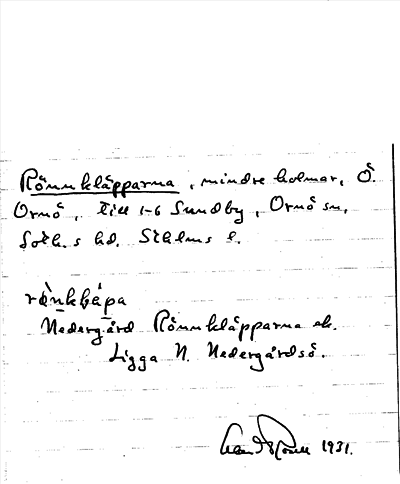 Rönnkläpparna, mindre holmar, Ö.
Ornö, Till 1-6 Sundby, Ornö sn,
Soth.s hd. Sthlms l.
Nedergård Rönnkläpparna ek.
Ligga N. Nedergårdsö.
1931.